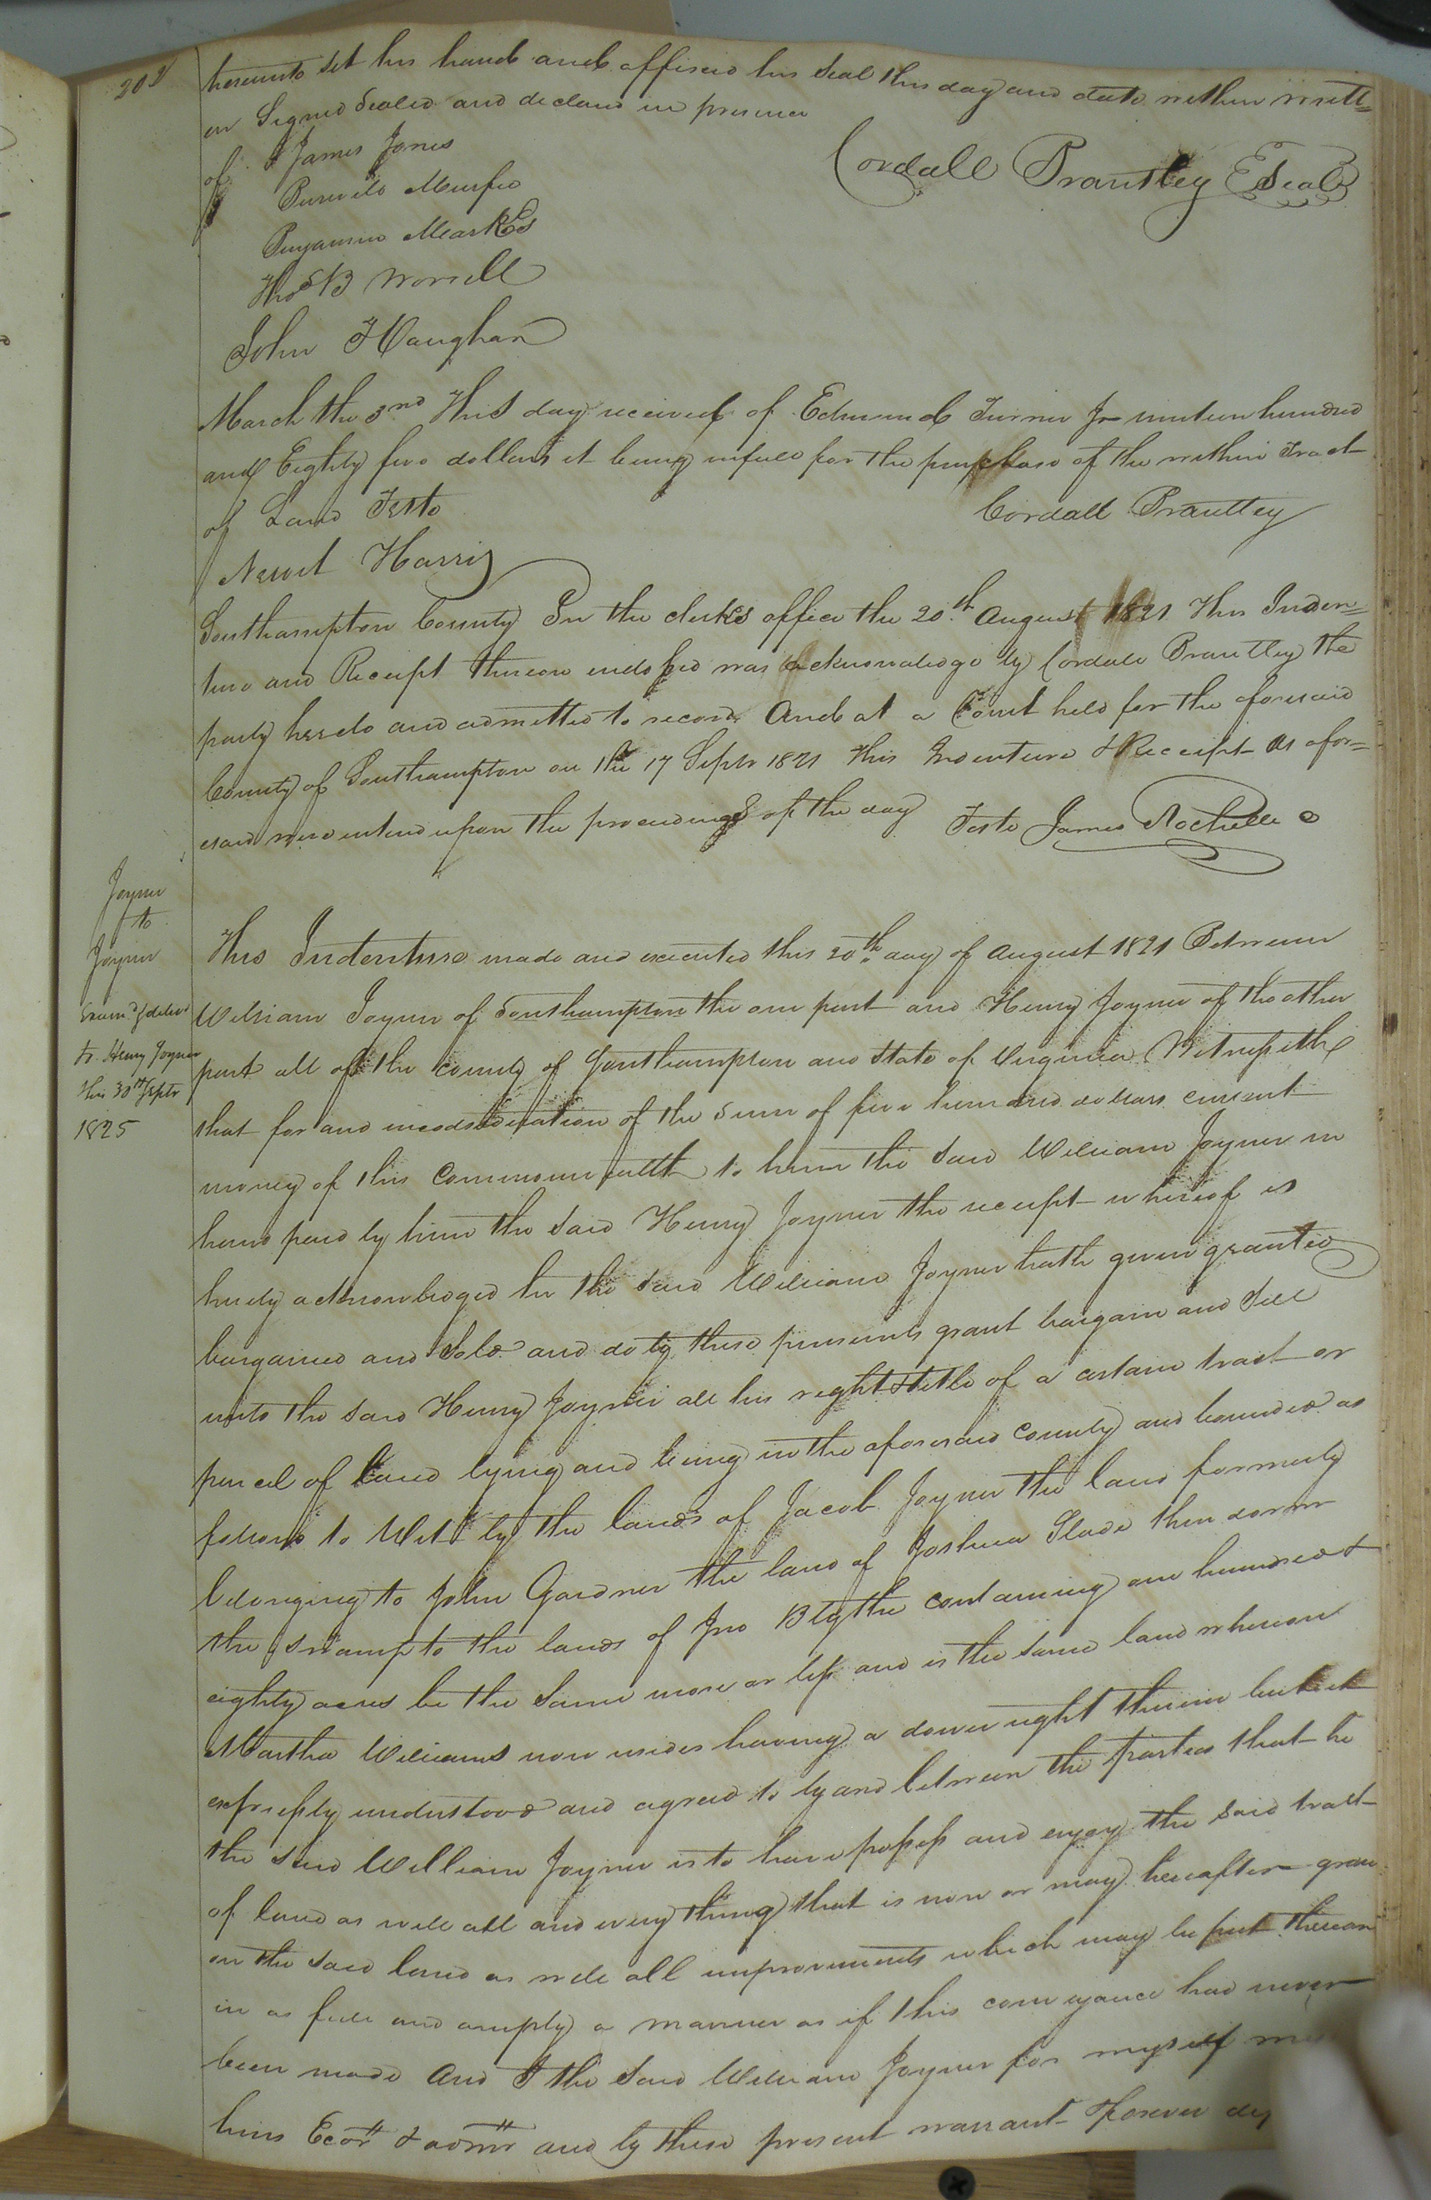 202
hereunto set his hand and affixed his seal this day and date within writt=
en Signed Sealed and declared in presence
of James Jones
Cordall Brantley Seal
Benjamin Marks
Thos B Worrell
John Vaughan
March the 3rd This day received of Edmund Turner Jr nineteen hundred
and Eighty five dollars it being in full for the purchase of the within Tract
of Land Teste
Cordall Brantley
Newit Harris
Southampton County In the clerks office the 20th August 1821 This Inden=
ture and Receipt thereon endorsed was acknowledge by Cordall Brantley the
party hereto and admitted to record And at a Court held for the aforesaid
County of Southampton on the 17 Septr 1821 This Indenture & Receipt as afor=
esaid were entered upon the proceedings of the day Teste James Rochelle C
Joyner
to
Joyner
Examd & delivd
to Henry Joyner
this 30th Septr
1825
This Indenture made and executed this 20th day of August 1821 Between
William Joyner of Southampton the one part and Henry Joyner of the other
part all of the county of Southampton and State of Virginia Witnesseth
that for and in consideration of the sum of five hundred dollars current
money of this Commonwealth to him the said William Joyner in
hand paid by him the said Henry Joyner the receipt whereof is
hereby acknowledged he the said William Joyner hath given granted
bargained and sold and do by these presents grant bargain and sell
unto the said Henry Joyner all his right & title of a certain tract or
parcel of land lying and being in the aforesaid County and bounded as
follows to Wit by the lands of Jacob Joyner the land formerly
belonging to John Gardner the land of Joshua Slade then down
the swamp to the lands of Jno Blythe containing one hundred &
eighty acres be the same more or less and is the same land whereon
Martha Williams now resides having a dower right therein but it
expressly understood and agreed to by and between the parties that he
the said William Joyner is to have possess and enjoy the said tract
of land as well all and every thing that is now or may hereafter grow
on the said land as well all improvements which may be put thereon
in as full and amply a manner as if this conveyance had never
been made And I the said William Joyner for myself my
heirs Ecors & admrs and by these present warrant & forever